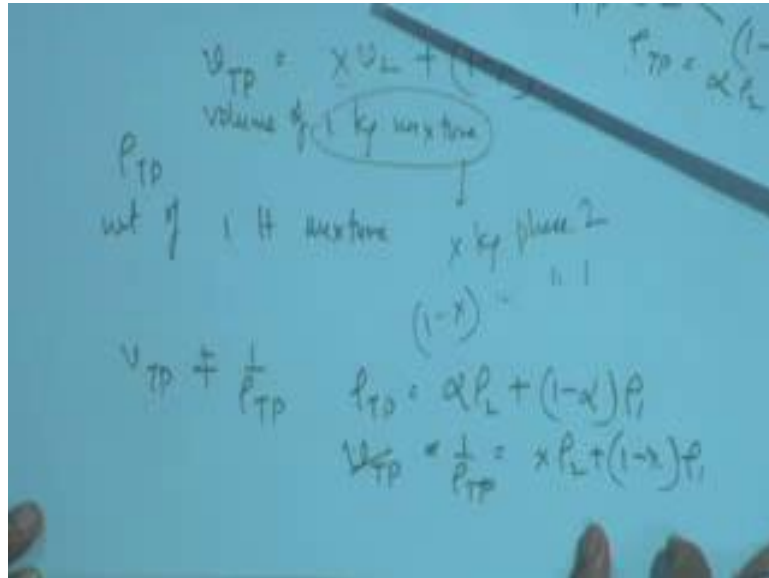 υ_TP = x υ_2 + (1-
volume of 1 kg mixture
ρ_TP = α ρ_2
(1-
ρ_TP
wt of 1 lt mixture
x kg phase 2
(1-x) " " 1
υ_TP ≠ 1/ρ_TP
ρ_TP = α ρ_2 + (1-α) ρ_1
υ_TP = 1/ρ_TP = x ρ_2 + (1-x) ρ_1